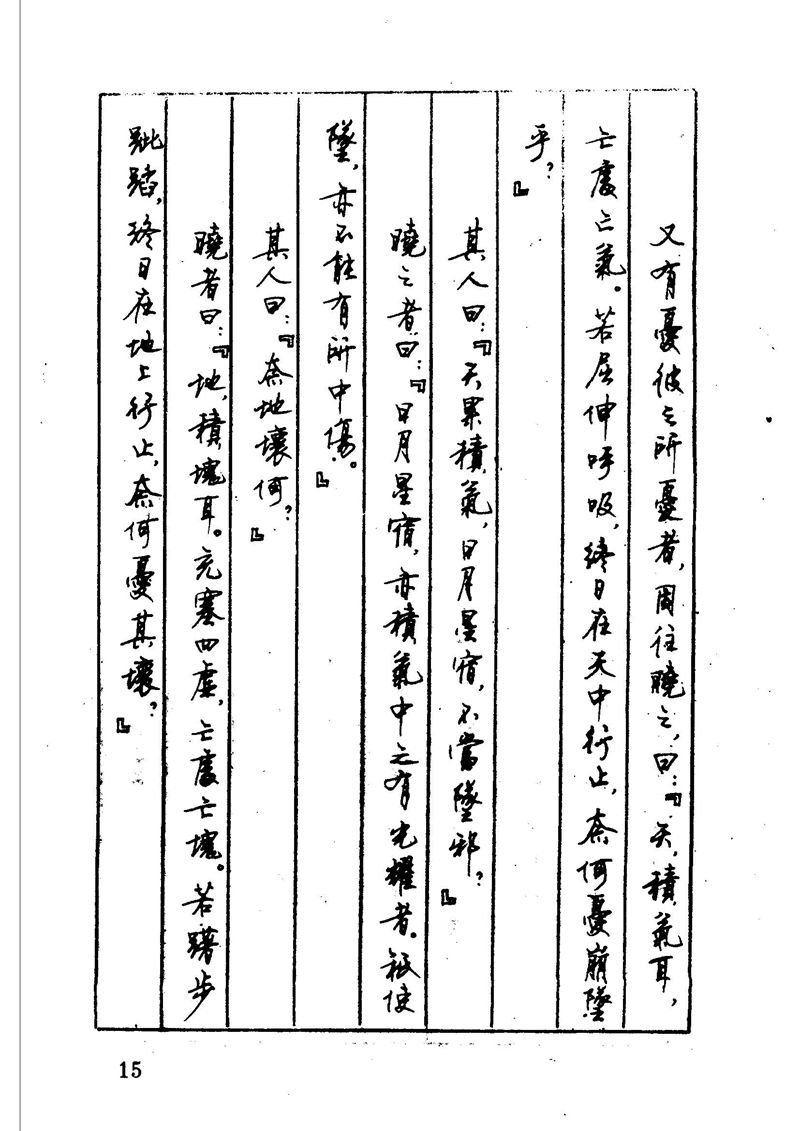 又有憂彼之所憂者，因往曉之，曰：『天，積氣耳，
亡處亡氣。若屈伸呼吸，終日在天中行止，奈何憂崩墜
乎？』
其人曰：『天果積氣，日月星宿，不當墜邪？』
曉之者曰：『日月星宿，亦積氣中之有光耀者。祇使
墜，亦不能有所中傷。』
其人曰：『奈地壞何？』
曉者曰：『地，積塊耳。充塞四虛，亡處亡塊。若躇步
跐蹈，終日在地上行止，奈何憂其壞？』
15